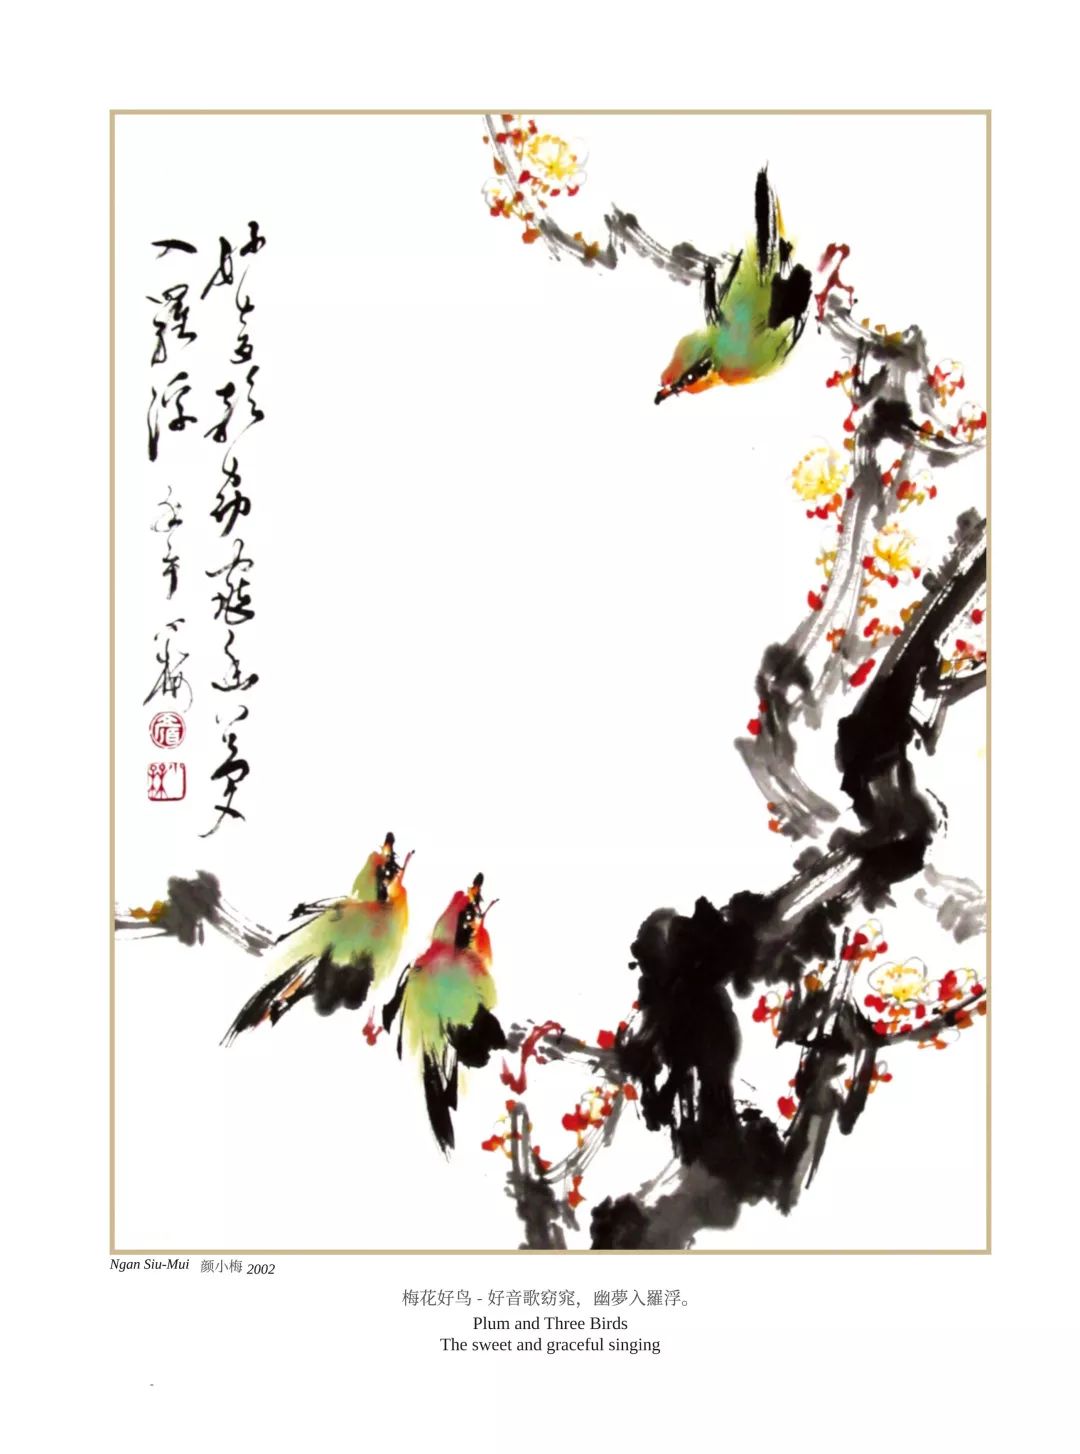 好音歌窈窕幽夢
入羅浮
Ngan Siu-Mui 颜小梅 2002
梅花好鸟 - 好音歌窈窕，幽夢入羅浮。
Plum and Three Birds
The sweet and graceful singing